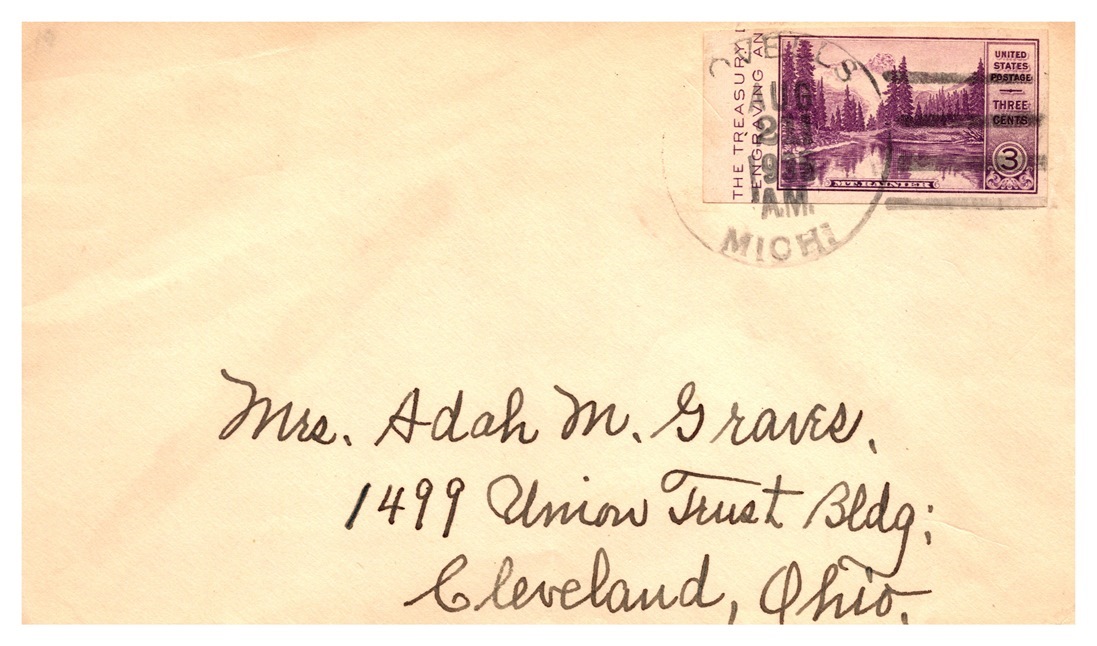 THE TREASURY
ENGRAVING AN
UNITED
STATES
POSTAGE
THREE
CENTS
3
MT. RAINIER
AUG
A.M.
MICH.
Mrs. Adah M. Graves.
1499 Union Trust Bldg;
Cleveland, Ohio.